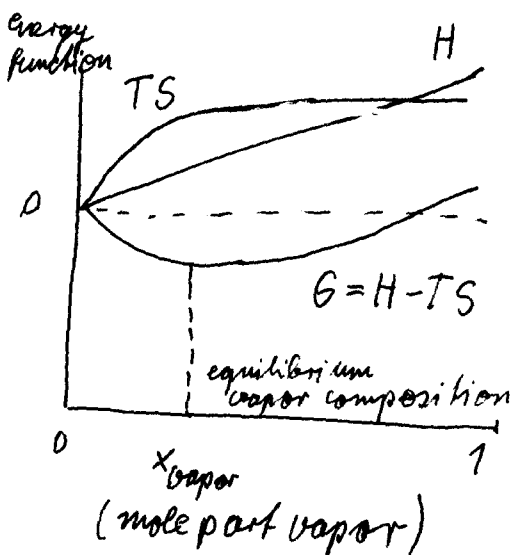 energy
function
H
TS
0
G = H - TS
equilibrium
vapor composition
0
1
x vapor
(mole part vapor)